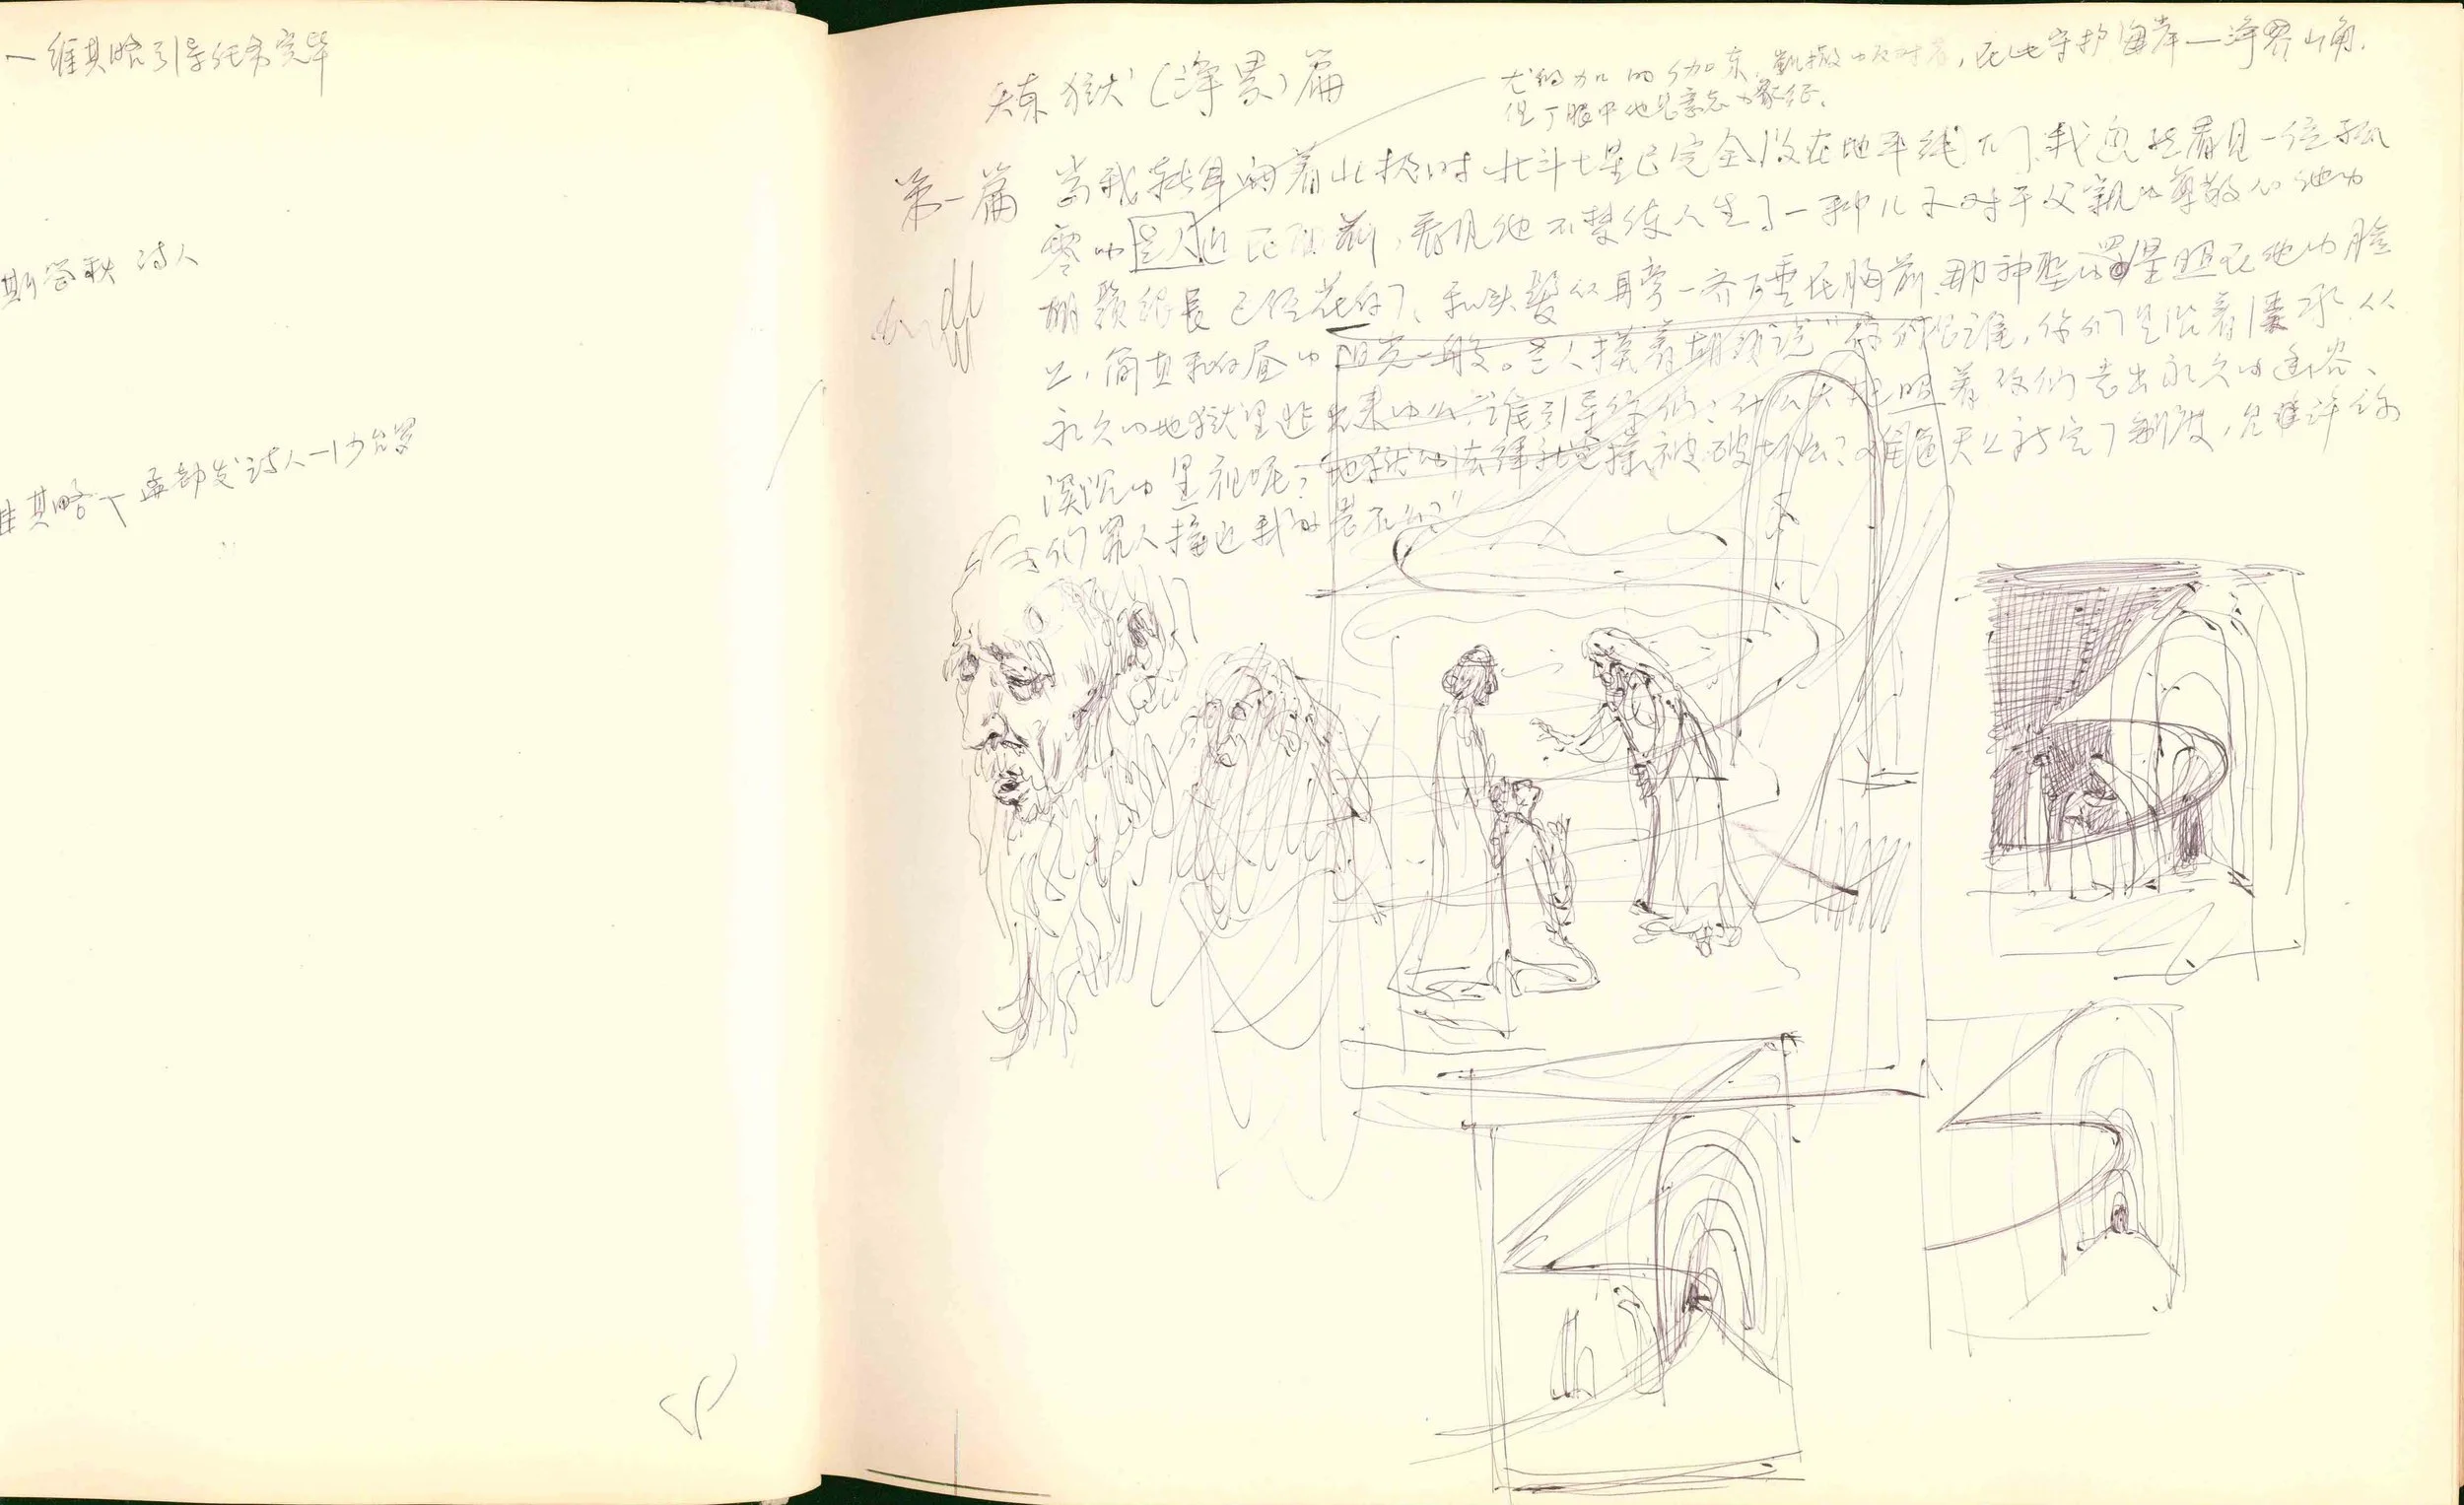 一维其略引导任务完毕
斯答秋 诗人
其略
炼狱（净界）篇
尤的加的伽东，凯撒的反对者，在此守护海岸—净界山角。
但丁眼中他是意志的象征。
第一篇
当我转身向着北极时 北斗七星已完全没在地平线下了，我忽然看见一位孤
零的老人近在眼前，看见他不禁使人生了一种儿子对于父亲的尊敬心 他的
胡须很长 已经花白了，和头发从耳旁一齐下垂在胸前，那神圣的四星照在他的脸
上，简直和白昼的阳光一般。老人摸着胡须说“你们是谁，你们是沿着溪水，从
永久的地狱里逃出来的么？谁引导你们？什么火把照着你们走出永久的幽谷、
深沉的黑夜呢？地狱的法律就这样被破坏么？难道天上新定了制度，允许你
们罪人接近我的岩石么？”